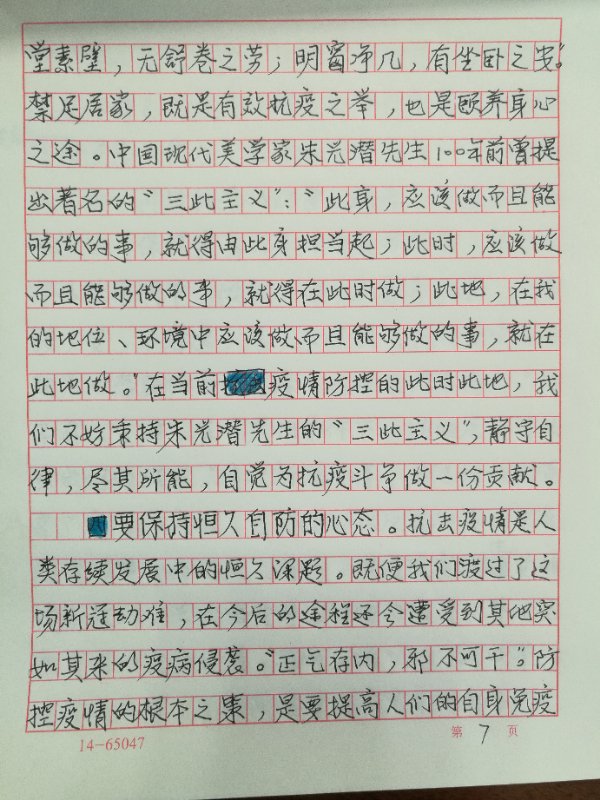 堂素壁，无舒卷之劳；明窗净几，有坐卧之安”。
禁足居家，既是有效抗疫之举，也是颐养身心
之途。中国现代美学家朱光潜先生100年前曾提
出著名的“三此主义”：“此身，应该做而且能
够做的事，就得由此身担当起；此时，应该做
而且能够做的事，就得在此时做；此地，在我
的地位、环境中应该做而且能够做的事，就在
此地做。”在当前疫情防控的此时此地，我
们不妨秉持朱光潜先生的“三此主义”，静守自
律，尽其所能，自觉为抗疫斗争做一份贡献。
要保持恒久自防的心态。抗击疫情是人
类存续发展中的恒久课题。既便我们渡过了这
场新冠劫难，在今后的途程还会遭受到其他突
如其来的疫病侵袭。“正气存内，邪不可干”。防
控疫情的根本之策，是要提高人们的自身免疫
14-65047
第 7 页